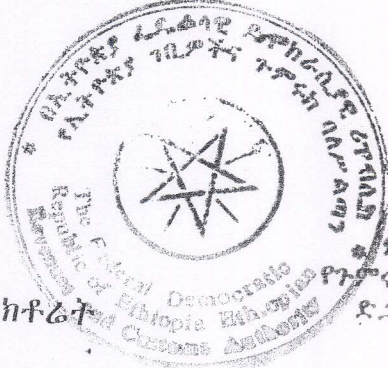 በኢትዮጵያ ፌዴራላዊ ዲሞክራሲያዊ ሪፐብሊክ
የኢትዮጵያ ገቢዎችና ጉምሩክ ባለሥልጣን
The Federal Democratic
Republic of Ethiopia Ethiopian
Revenue and Customs Authority
ክቶሬት